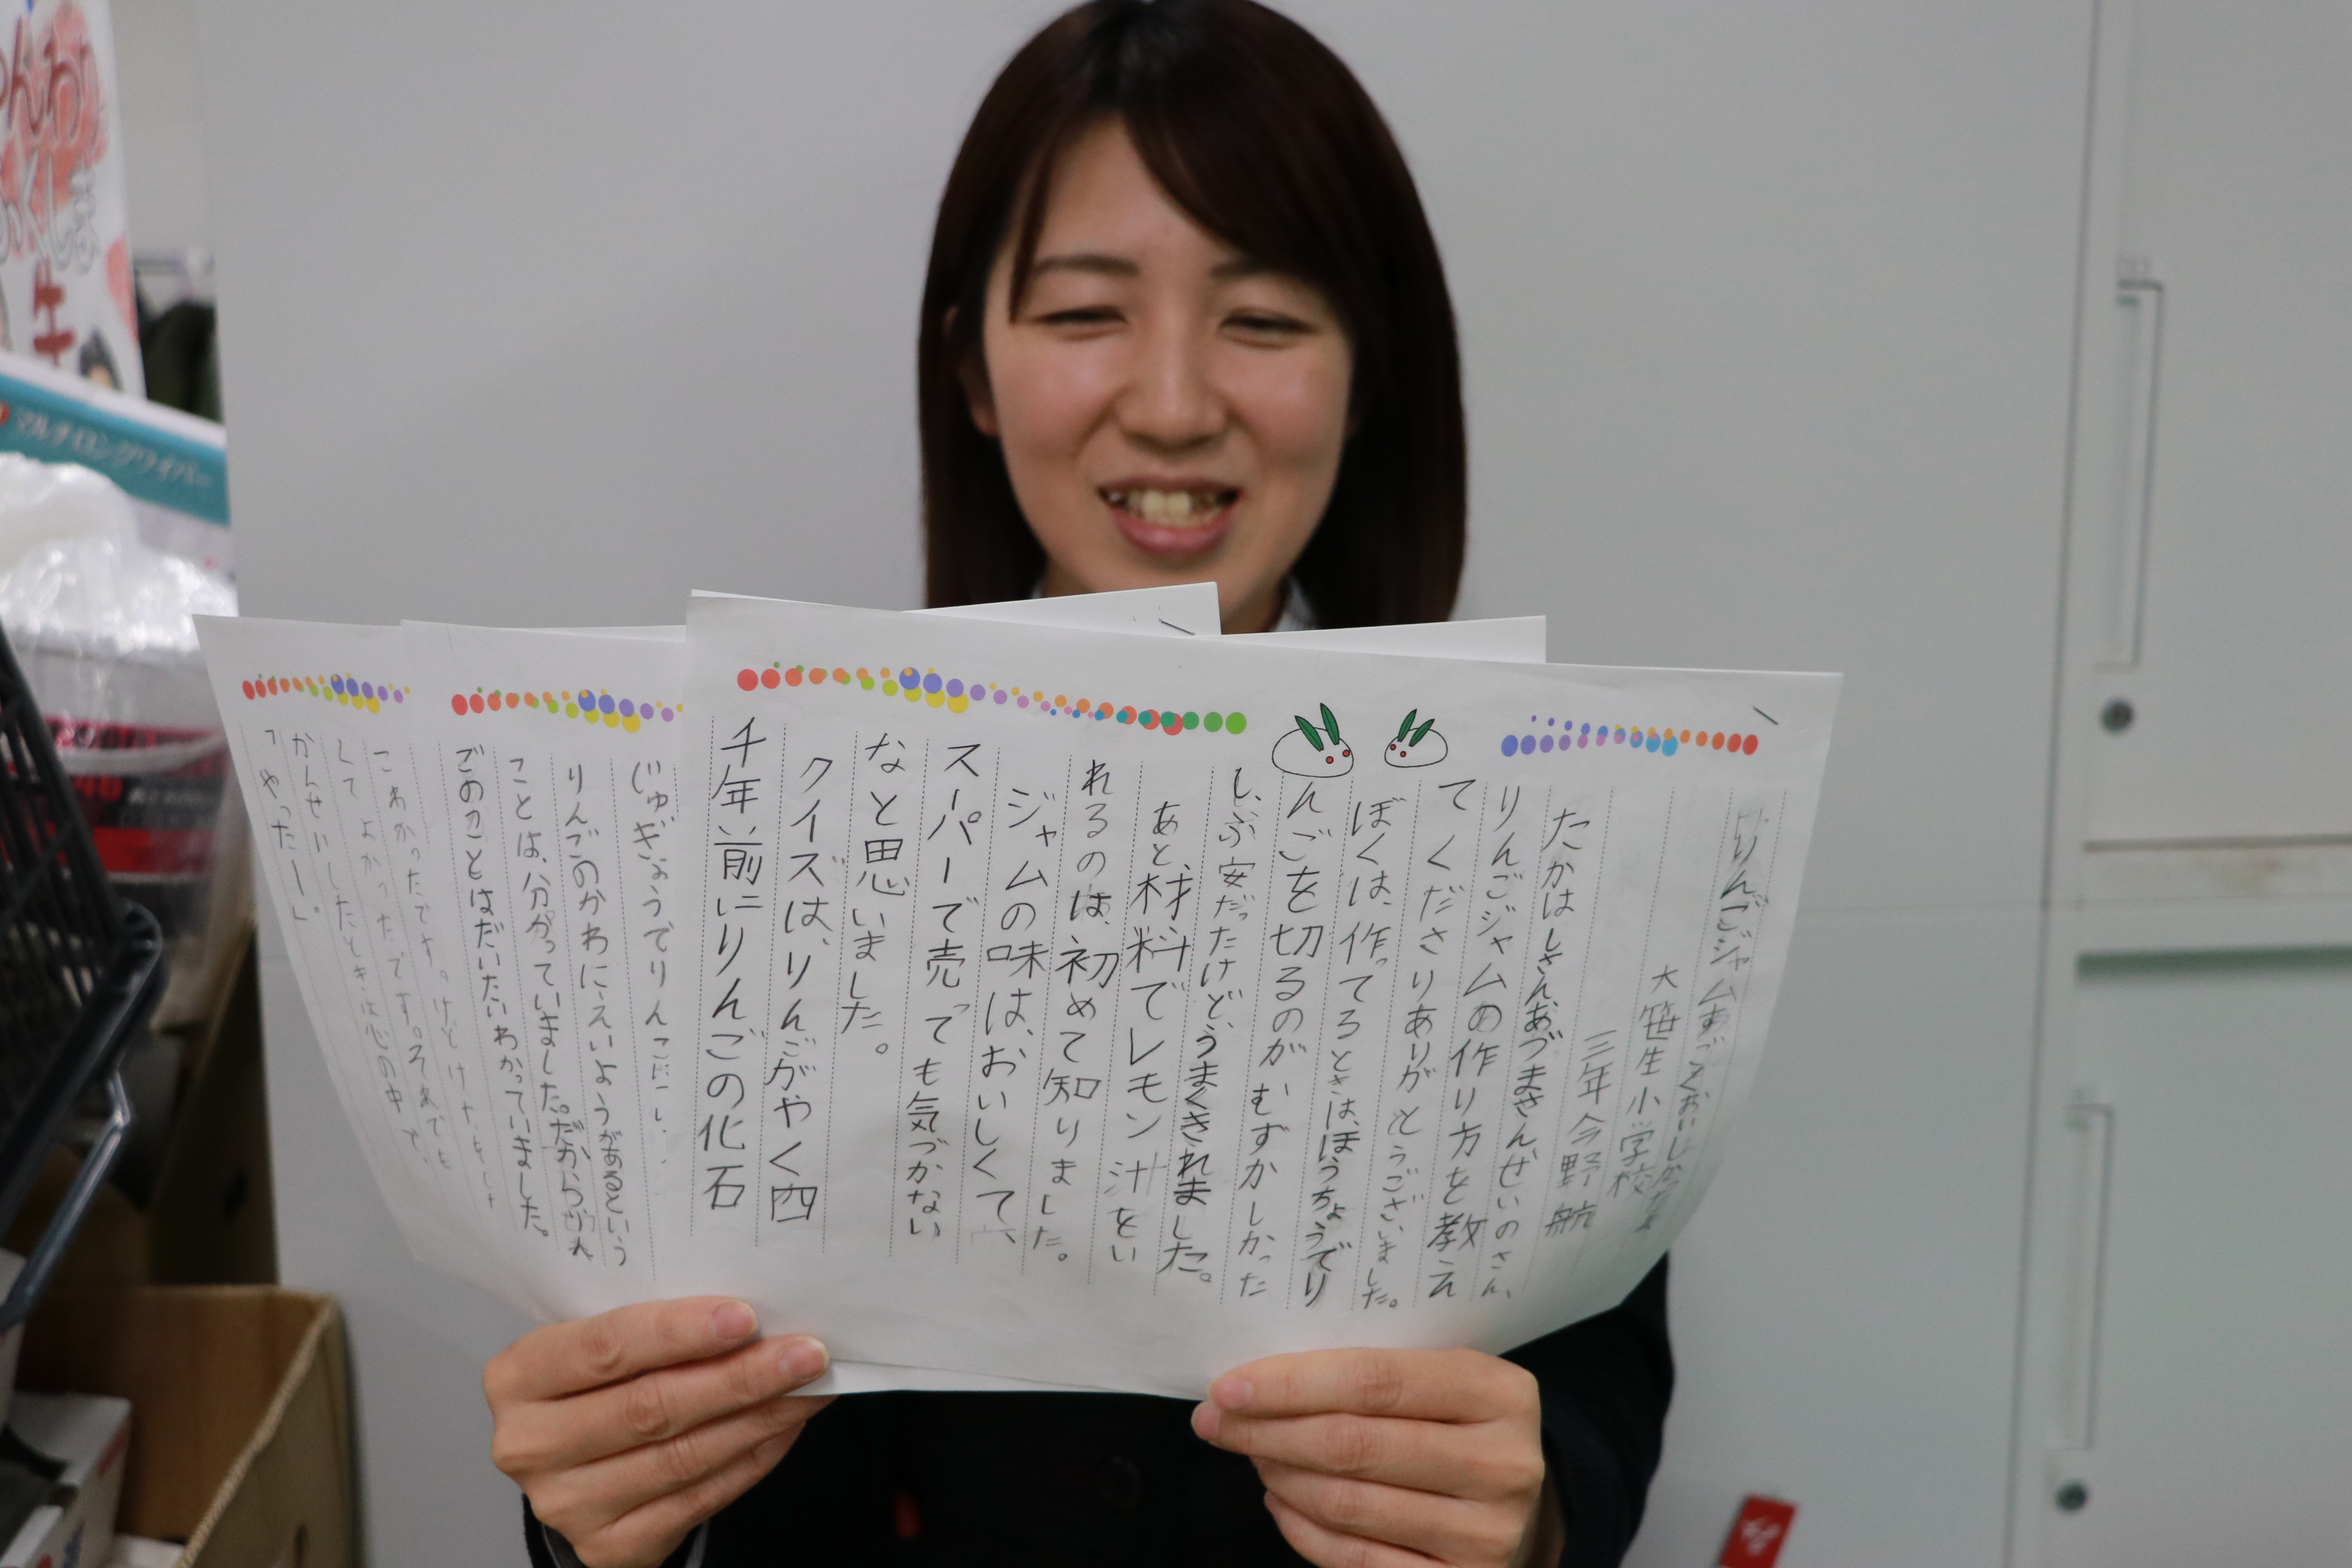 りんごジャムすごくおいしかったよ
大笹生小学校
三年 今野 航
たかはしさん、あづまさん、ぜいのさん、
りんごジャムの作り方を教え
てくださりありがとうございました。
ぼくは、作ってるときは、ほうちょうでり
んごを切るのがむずかしかった
し、ぶ安だったけど、うまくきれました。
あと、材料でレモン汁をい
れるのは、初めて知りました。
ジャムの味は、おいしくて、
スーパーで売っても気づかない
なと思いました。
クイズは、りんごがやく四
千年前にりんごの化石
じゅぎょうでりんご
りんごのかわにえいようがあるという
ことは、分かっていました。だから、りん
ごのことはだいたいわかっていました。
こわかったです。けど
してよかったです。それでも
かんせいしたときは心の中で、
「やったー」
マルチロングワイパー
ふくしま